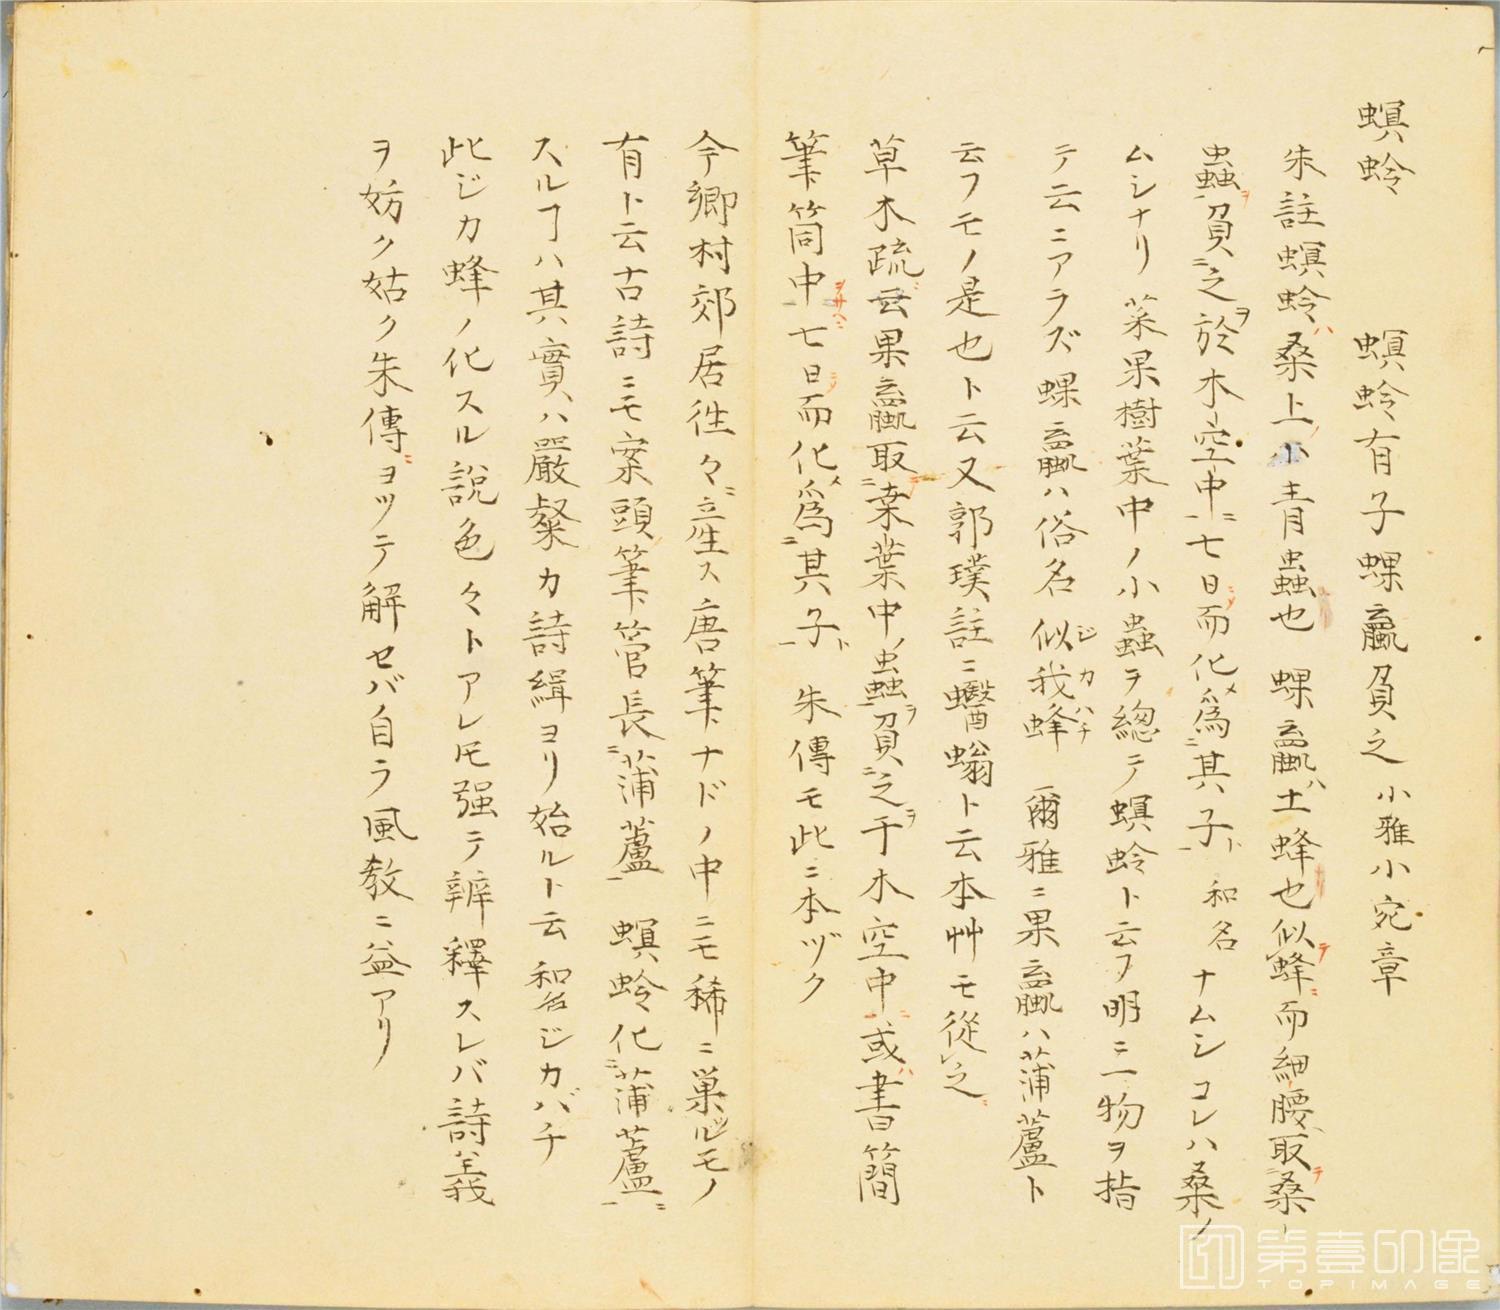 螟蛉　　螟蛉有子蜾蠃負之 小雅小宛章
朱註螟蛉ハ桑上ノ小青蟲也 蜾蠃ハ土蜂也似蜂而細腰取桑
蟲負之於木空中七日而化爲其子 和名ナムシコレハ桑ノ
ムシナリ菜果樹葉中ノ小蟲ヲ總テ螟蛉ト云フ明ニ一物ヲ指
テ云ニアラズ蜾蠃ハ俗名似我蜂 爾雅ニ果蠃ハ蒲蘆ト
云フモノ是也ト云又郭璞註ニ蠮螉ト云本艸モ從之
草木疏云果蠃取桒葉中ノ蟲負之于木空中或書簡
筆筒中七日而化爲其子 朱傳モ此ニ本ヅク
今郷村郊居往々ニ産ス唐筆ナドノ中ニモ稀ニ巣ルモノ
有ト云古詩ニモ案頭筆管長蒲蘆 螟蛉化蒲蘆
スルヿハ其實ハ嚴粲カ詩緝ヨリ始ルト云 和名ジカバチ
此ジカ蜂ノ化スル説色々トアレ𪜈强テ辨釋スレバ詩義
ヲ妨ク姑ク朱傳ニヨツテ解セバ自ラ風教ニ益アリ
第壹印像
TOPIMAGE